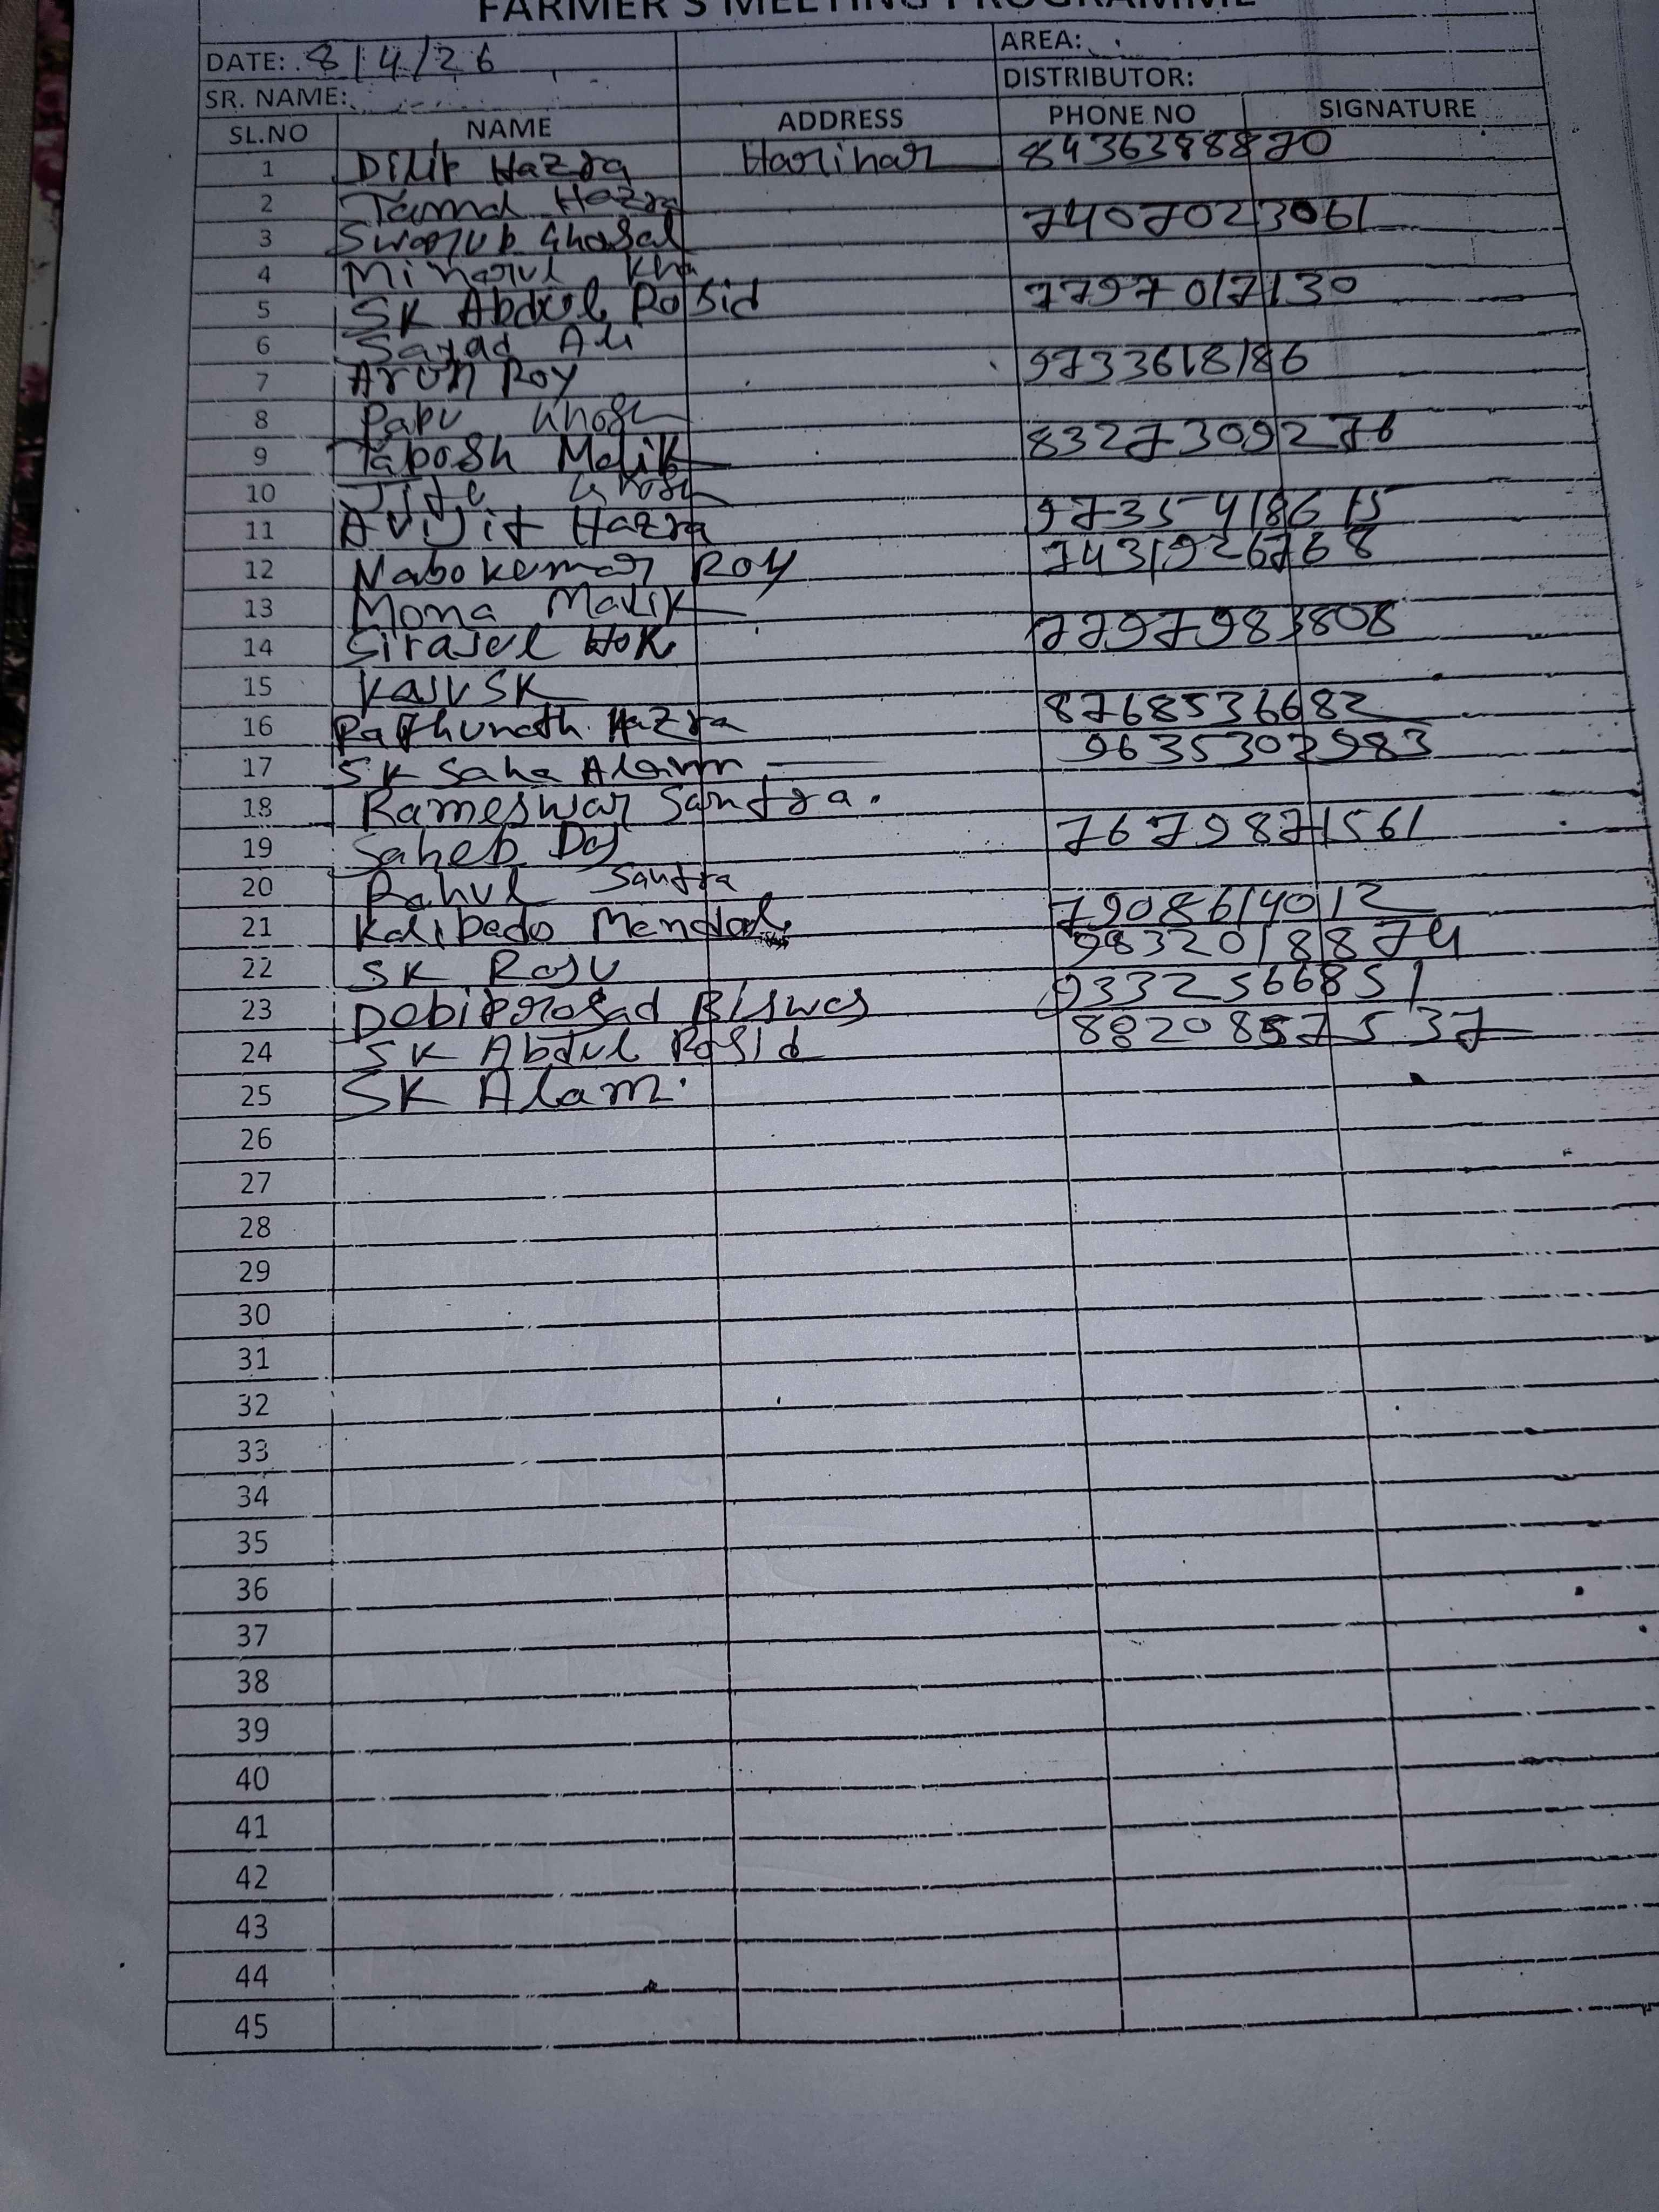 FARMER'S MEETING PROGRAMME
DATE: 8/4/26 AREA:
DISTRIBUTOR:
SR. NAME:
SL.NO NAME ADDRESS PHONE NO SIGNATURE
1 Dilip Hazra Harihar 8436388870
2 Hazra
3 Swarup Ghosal 7407023061
4 Minarul Kha
5 SK Abdul Rosid 7797017130
6 Sayad Ali
7 Arun Roy 9733618186
8 Papu Ghosh
9 Taposh Malik 8327309276
10 Ghosh
11 Avijit Hazra 9735418615
12 Nabokumar Roy 7431926768
13 Mona Malik
14 Sirajul Hok 7797983808
15 Kaju SK
16 Hazra 8768536682
17 SK Saha Alam 9635302983
18 Rameswar Santra.
19 Saheb Das 7679871561
20 Rahul Santra
21 Kalipado Mondal 7908614012
22 SK Raju 9832018874
23 Debiprosad Biswas 93332566851
24 SK Abdul Rosid 8820857537
25 SK Alam.
26
27
28
29
30
31
32
33
34
35
36
37
38
39
40
41
42
43
44
45